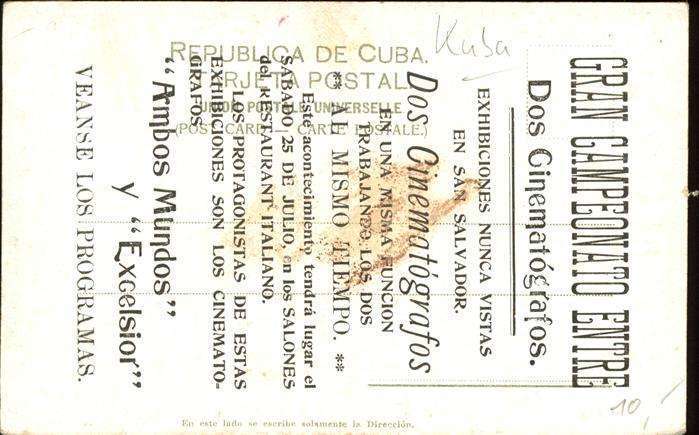 REPUBLICA DE CUBA.
TARJETA POSTAL
UNION POSTALE UNIVERSELLE
(POST CARD — CARTE POSTALE.)
Kuba
GRAN CAMPEONATO ENTRE
Dos Cinematógrafos.
EXHIBICIONES NUNCA VISTAS
EN SAN SALVADOR.
Dos Cinematógrafos
EN UNA MISMA FUNCION
TRABAJANDO LOS DOS
** AL MISMO TIEMPO. **
Este acontecimiento tendrá lugar el
SABADO 25 DE JULIO, en los SALONES
del RESTAURANT ITALIANO.
LOS PROTAGONISTAS DE ESTAS
EXHIBICIONES SON LOS CINEMATO-
GRAFOS
"Ambos Mundos"
y "Excelsior"
VEANSE LOS PROGRAMAS.
En este lado se escribe solamente la Dirección.
10,-